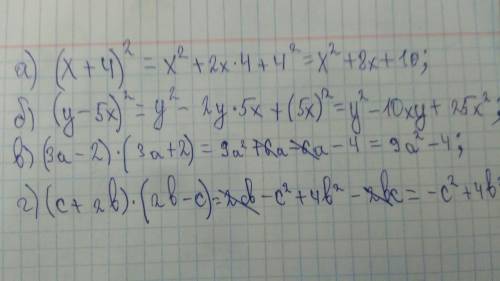 а) (x+4)² = x²+2x·4+4² = x²+8x+10;
б) (y-5x)² = y² - 2y·5x+(5x)² = y²-10xy+25x²;
в) (3a-2)·(3a+2) = 9a²+6a-6a-4 = 9a²-4;
г) (c+2b)·(2b-c) = 2cb-c²+4b²-2bc = -c²+4b²